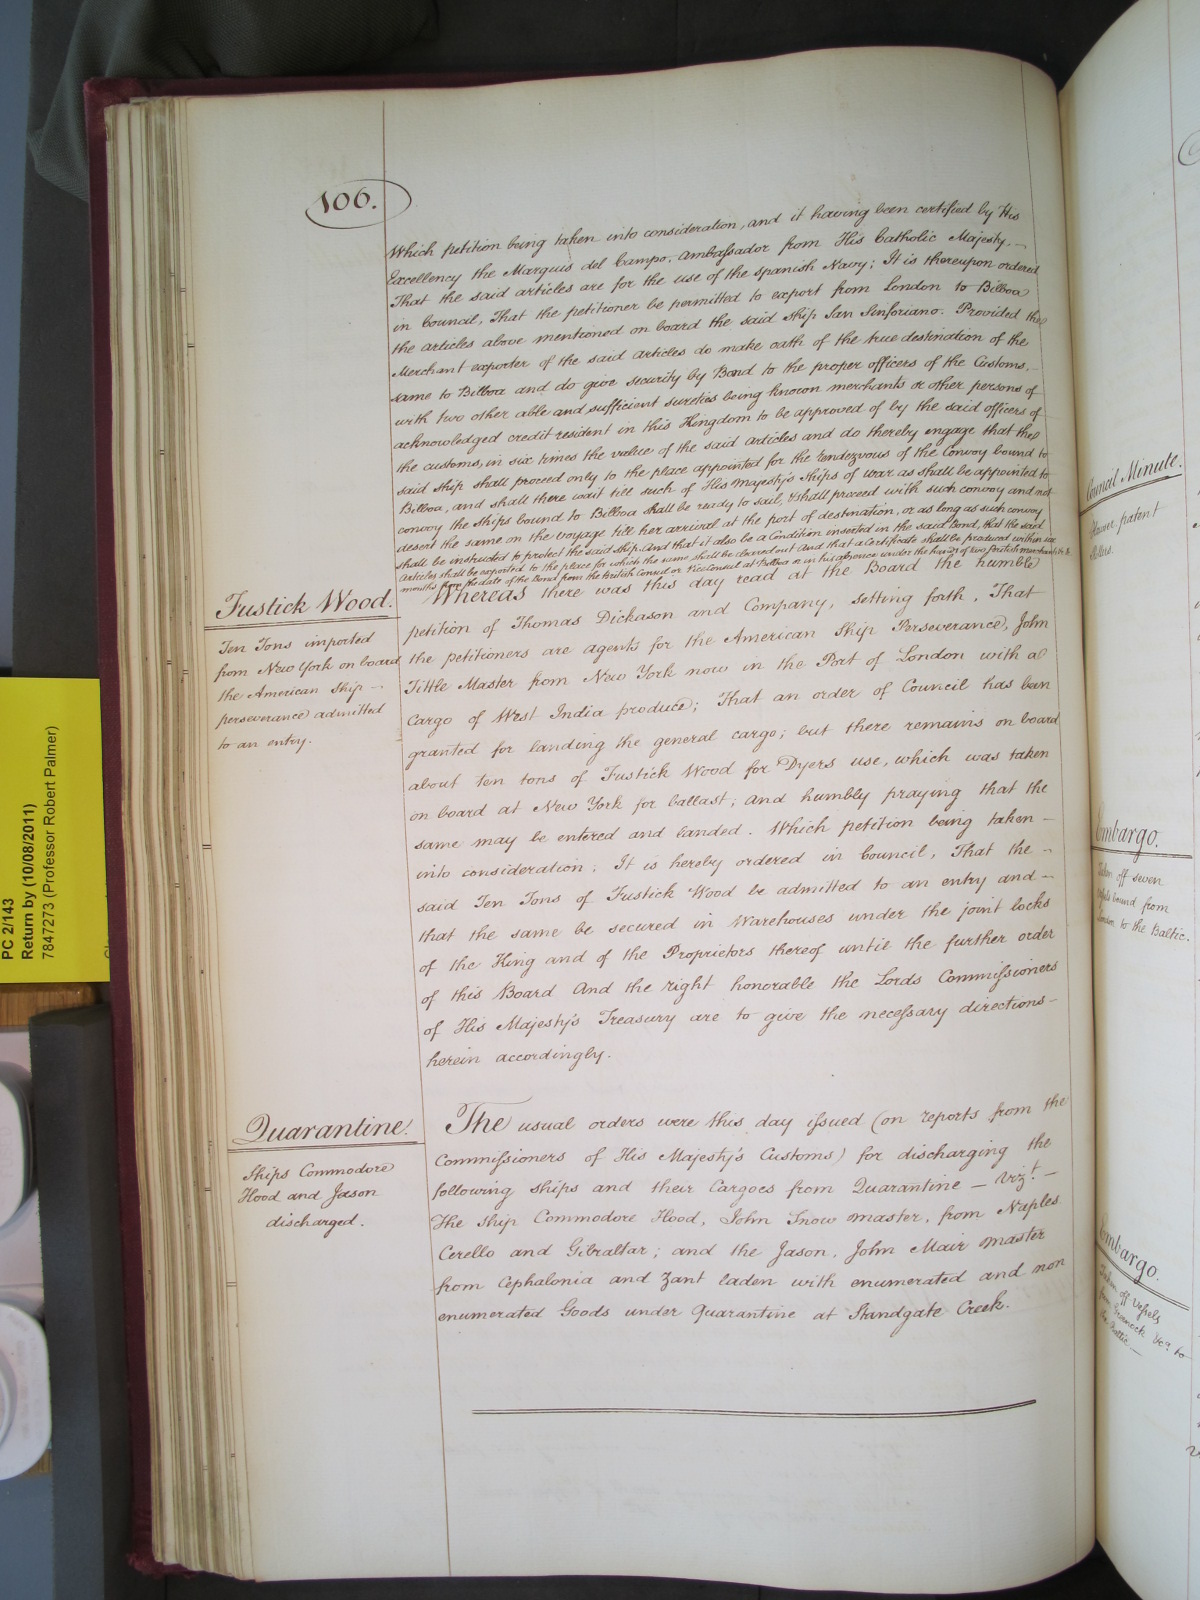 106.
Which petition being taken into consideration, and it having been certified by His
Excellency the Marquis del Campo, Ambassador from His Catholic Majesty. –
That the said articles are for the use of the spanish Navy; It is thereupon ordered
in Council, That the petitioner be permitted to export from London to Bilboa
the articles above mentioned on board the said ship San Sinforiano. Provided the
Merchant exporter of the said articles do make oath of the true destination of the
same to Bilboa and do give security by Bond to the proper officers of the Customs, –
with two other able and sufficient sureties being known merchants or other persons of
acknowledged credit resident in this Kingdom to be approved of by the said officers of
the customs, in six times the value of the said articles and do thereby engage that the
said ship shall proceed only to the place appointed for the rendezvous of the Convoy bound to
Bilboa, and shall there wait till such of His Majesty's Ships of war as shall be appointed to
convoy the ships bound to Bilboa shall be ready to sail, & shall proceed with such convoy and not
desert the same on the voyage till her arrival at the port of destination, or as long as such convoy
shall be instructed to protect the said ship. And that it also be a Condition inserted in the said Bond, that the said
Articles shall be exported to the place for which the same shall be cleared out And that a Certificate shall be produced within six
months from the date of the Bond from the British Consul or Vice Consul at Bilboa or in his absence under the hands of two british merchants &c
Fustick Wood.
Ten Tons imported
from New York on board
the American Ship –
perseverance admitted
to an entry.
Whereas there was this day read at the Board the humble
petition of Thomas Dickason and Company, setting forth, That
the petitioners are agents for the American Ship Perseverance, John
Tittle Master from New York now in the Port of London with a
Cargo of West India produce; That an order of Council has been
granted for landing the general cargo; but there remains on board
about ten tons of Fustick Wood for Dyers use, which was taken
on board at New York for ballast; and humbly praying that the
same may be entered and landed. Which petition being taken –
into consideration; It is hereby ordered in Council, That the –
said Ten Tons of Fustick Wood be admitted to an entry and –
that the same be secured in Warehouses under the joint locks
of the King and of the Proprietors thereof until the further order
of this Board And the right honorable the Lords Commissioners
of His Majesty's Treasury are to give the necessary directions –
herein accordingly.
Quarantine.
Ships Commodore
Hood and Jason
discharged.
The usual orders were this day issued (on reports from the
Commissioners of His Majesty's Customs) for discharging the
following ships and their Cargoes from Quarantine – Vizt. –
The ship Commodore Hood, John Snow master, from Naples
Cerello and Gibraltar; and the Jason, John Mair master
from Cephalonia and Zant laden with enumerated and non
enumerated Goods under Quarantine at Standgate Creek.
PC 2/143
Return by (10/08/2011)
7847273 (Professor Robert Palmer)
Council Minute.
patent
Embargo.
Taken off seven
vessels bound from
London to the Baltic.
Embargo.
Taken off Vessels
from Greenock &c. to
the Baltic –